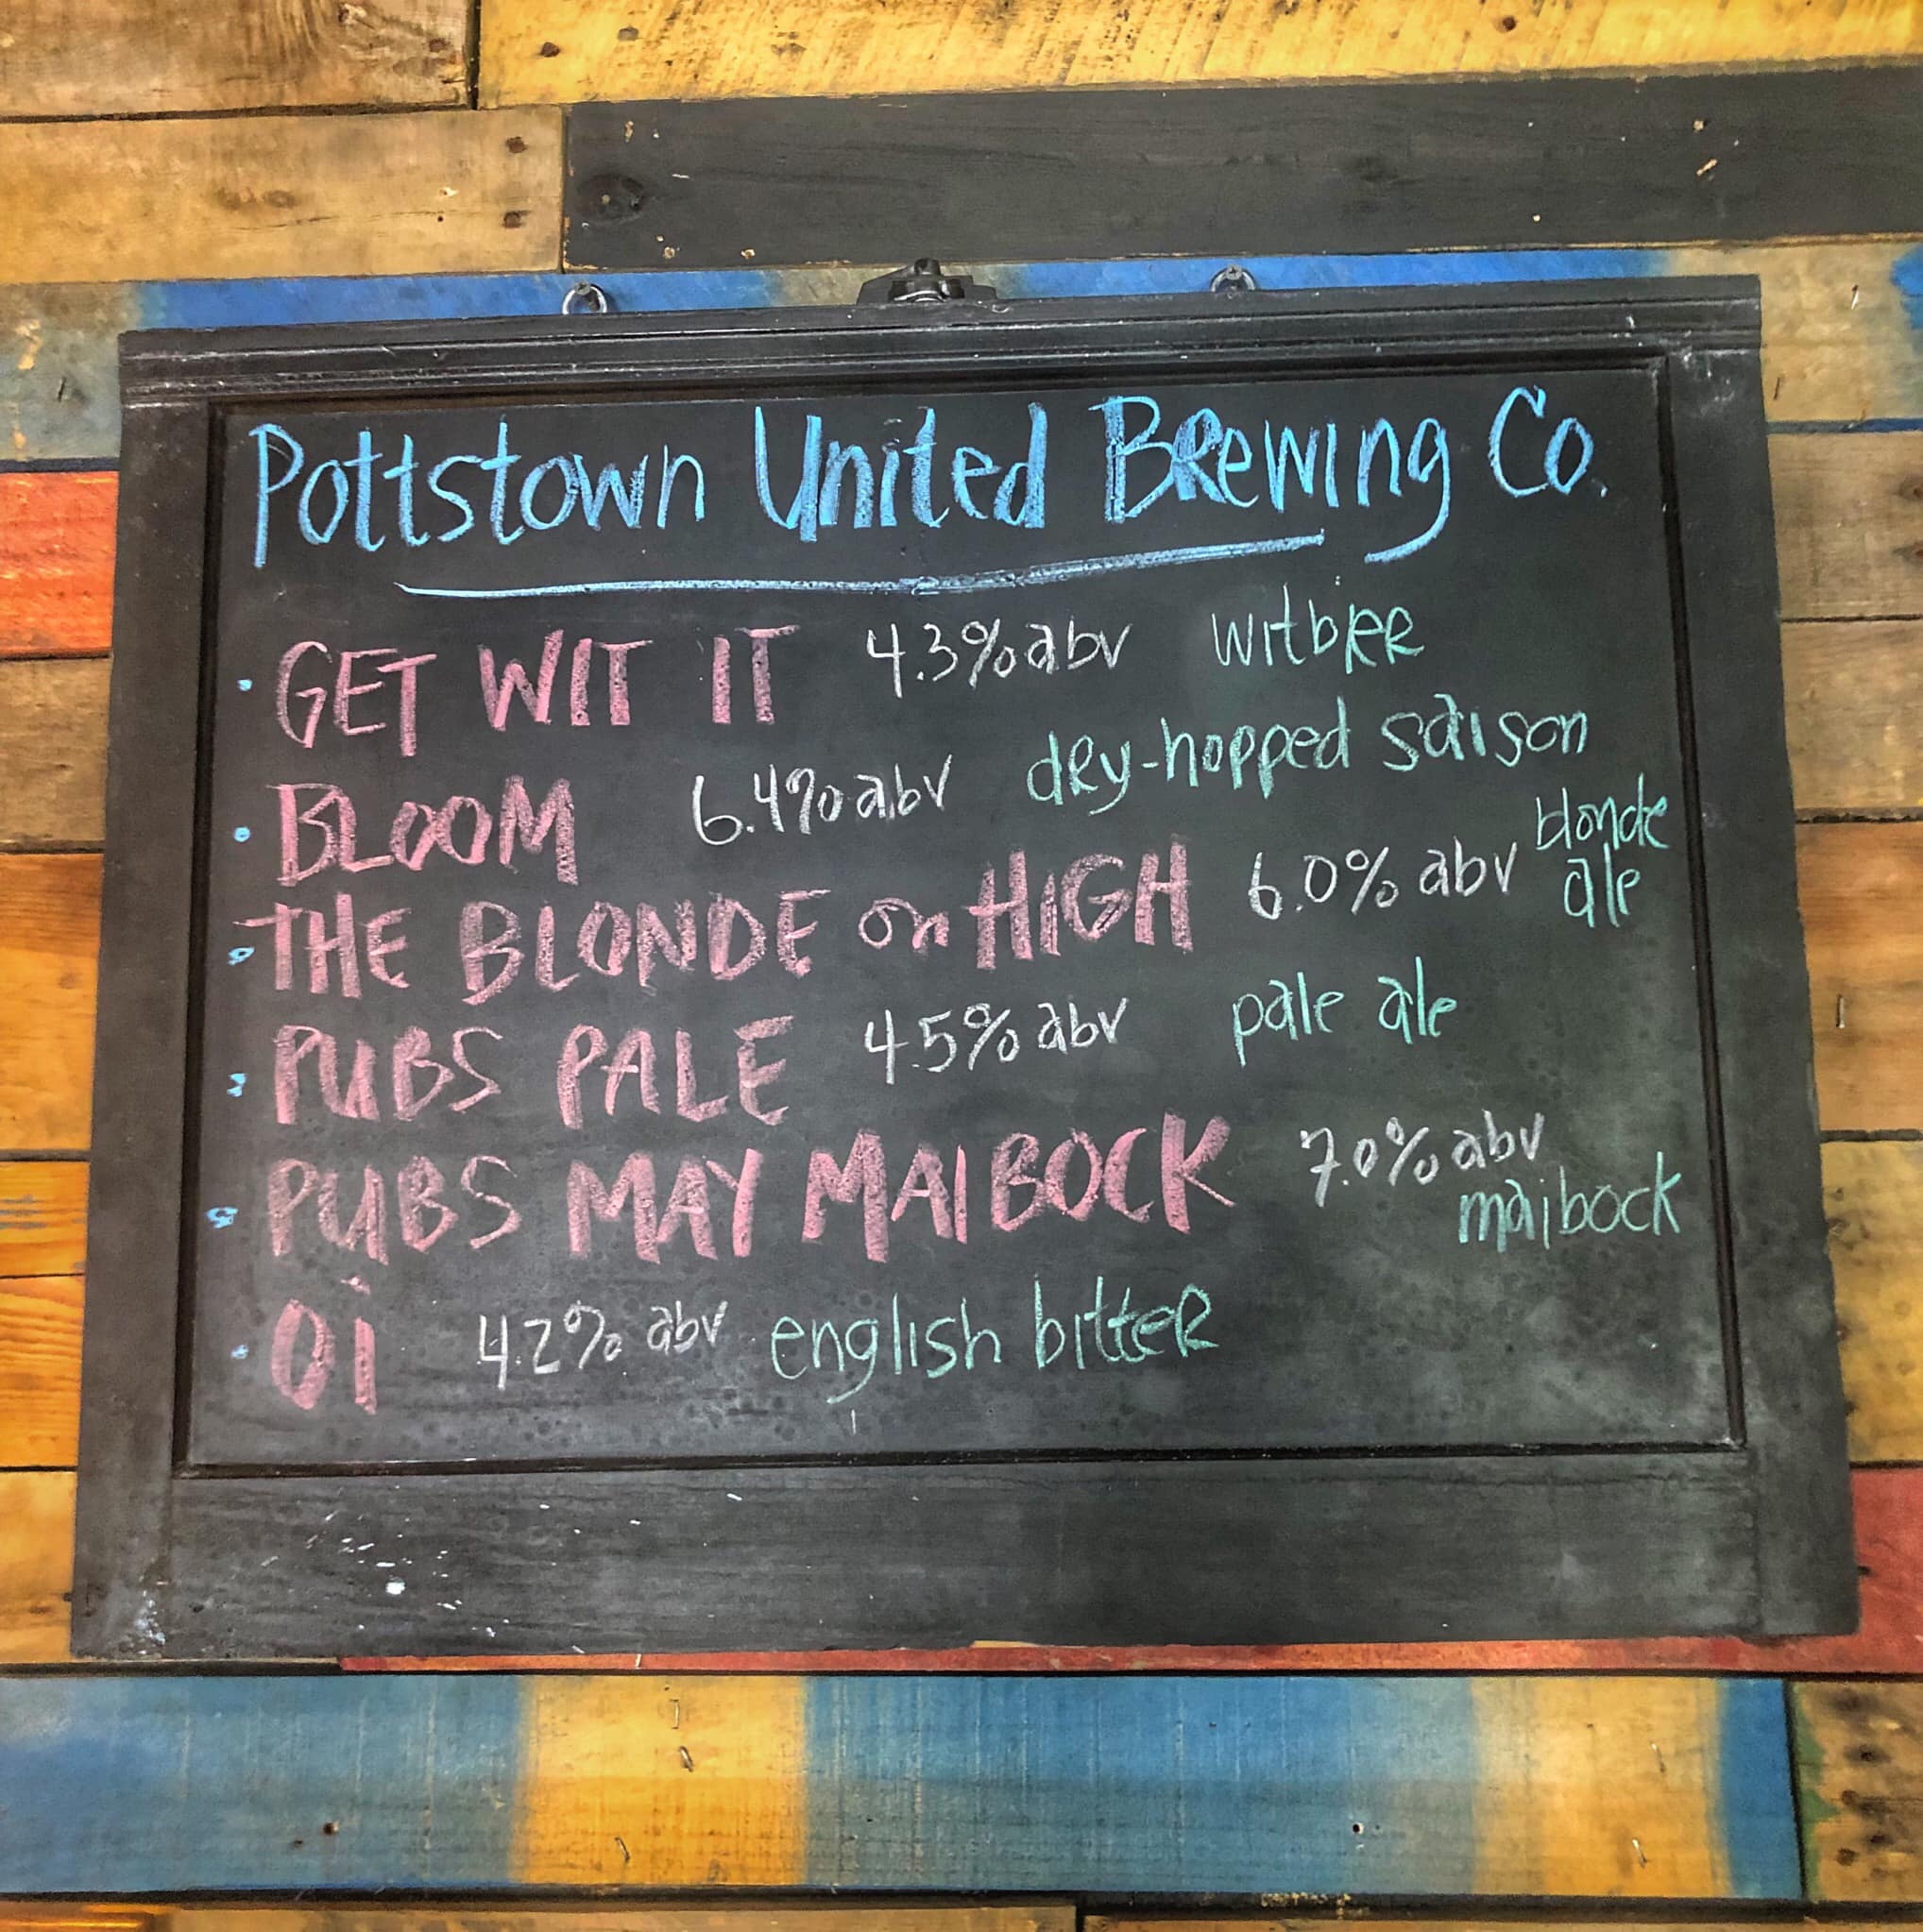 Pottstown United Brewing Co.
• GET WIT IT 4.3% abv witbier
• BLOOM 6.4% abv dry-hopped saison
• THE BLONDE on HIGH 6.0% abv blonde ale
• PUBS PALE 4.5% abv pale ale
• PUBS MAY MAIBOCK 7.0% abv maibock
• Oi 4.2% abv english bitter